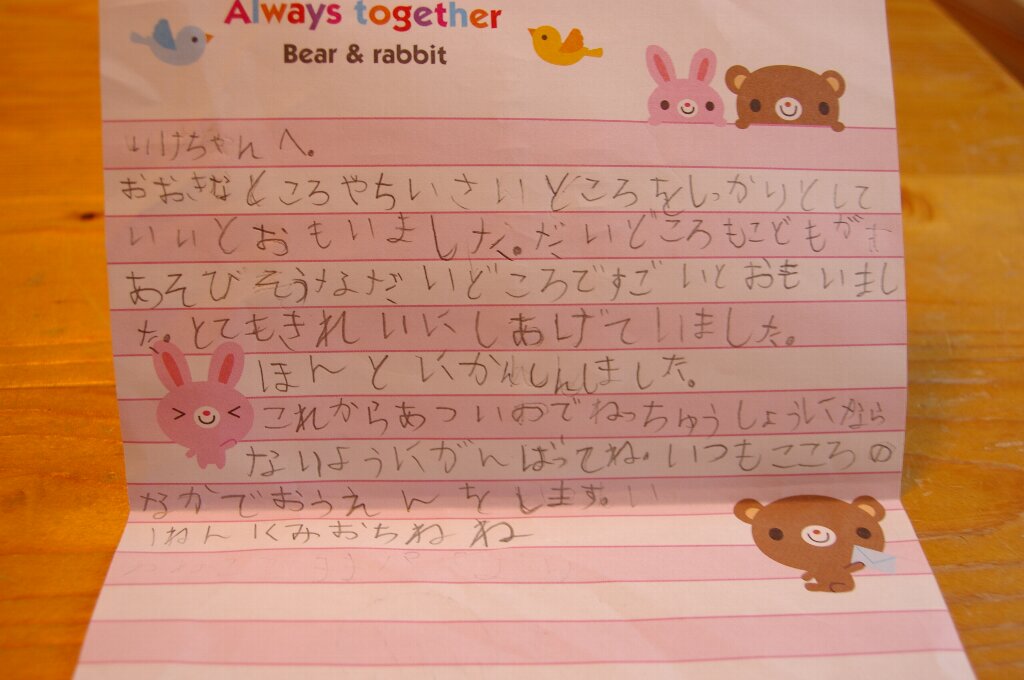 Always together
Bear & rabbit
いけちゃんへ。
おおきなところやちいさいどころをしっかりとして
いいとおもいました。だいどころもこどもがす
あそびそうなだいどころですごいとおもいまし
た。とてもきれいにしあげていました。
ほんとにかんしんしました。
これからあついのでねっちゅうしょうになら
ないようにがんばってね。いつもこころの
なかでおうえんをします。
1ねん1くみおちねね